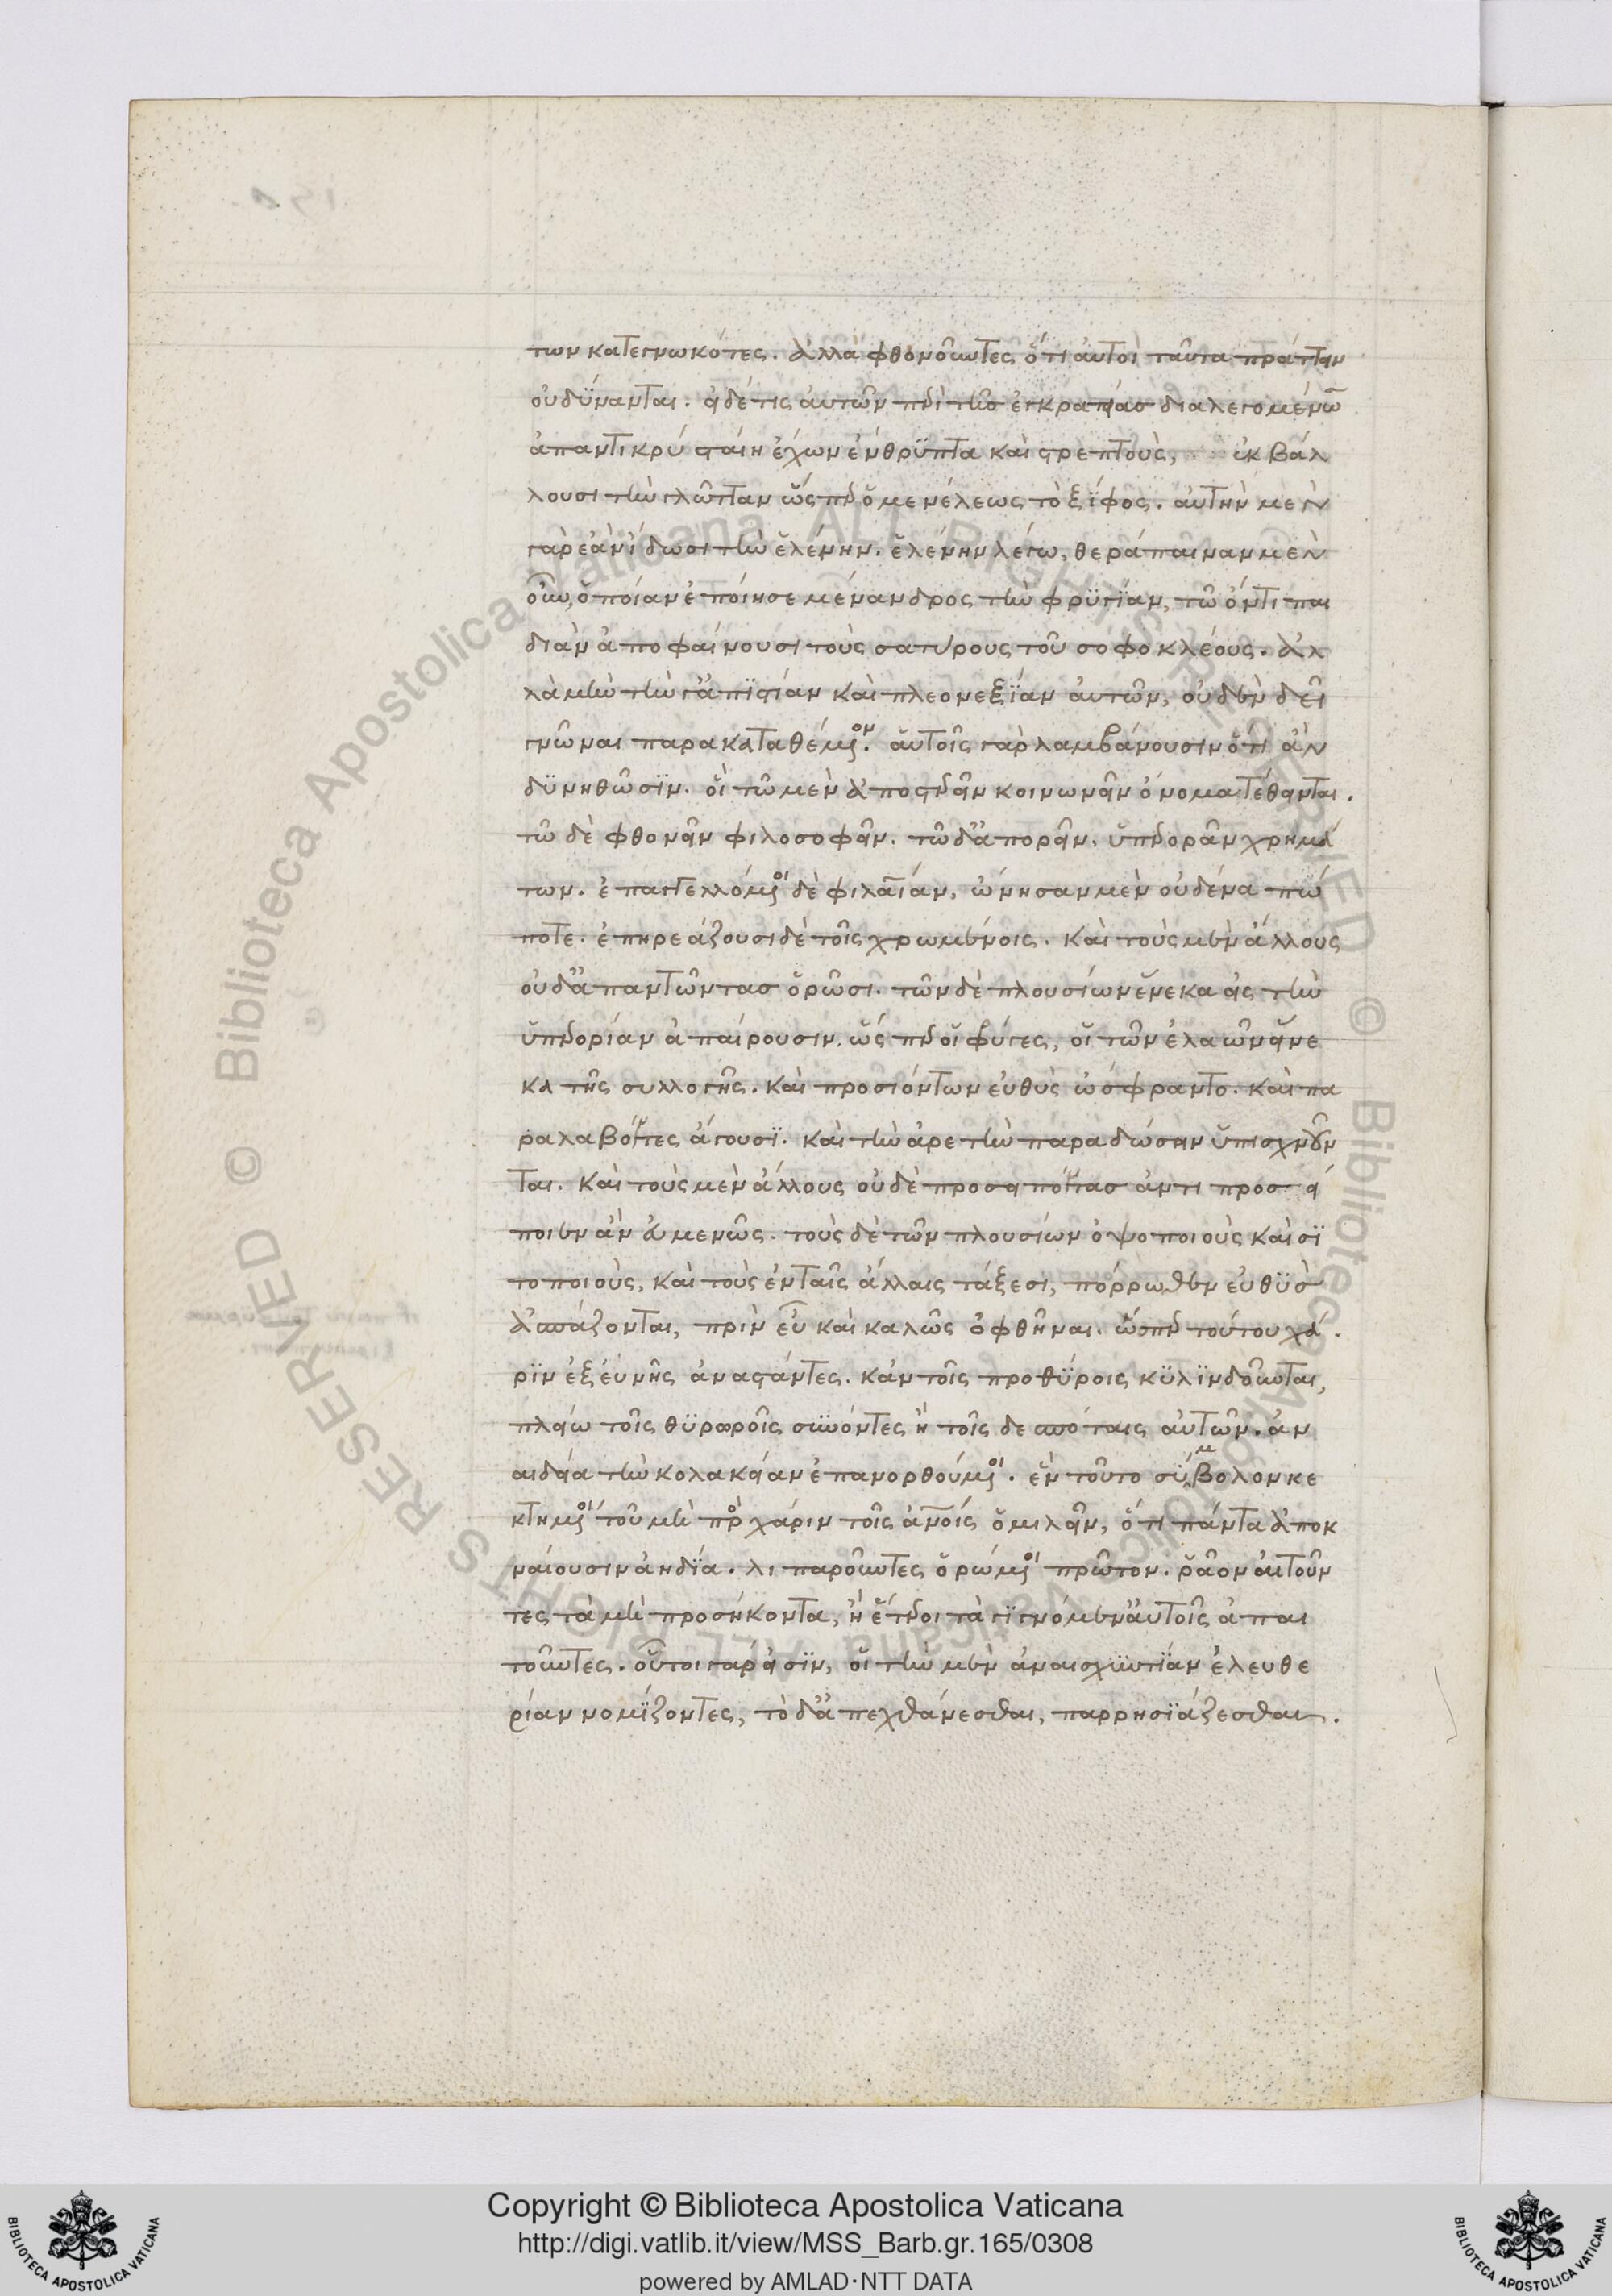 των κατεγνωκότες. ἀλλὰ φθονοῦντες ὅτι αὐτοὶ ταῦτα πράττειν
οὐ δύνανται. εἰ δέ τις αὐτῶν περὶ τῆσ ἐγκρατείασ διαλεγομένων
ἀπαντικρὺ σταίη ἔχων ἔνθρϋπτα καὶ στρεπτοὺς, ἐκβάλ
λουσι τὴν γλῶτταν ὥσπερ ὁ μενέλεως τὸ ξίφος. αὐτὴν μὲν
γὰρ ἐὰν ἴδωσι τὴν ἑλένην. ἑλένην λέγω, θεράπαιναν μὲν
οὖν, ὁποίαν ἐποίησε μένανδρος τὴν φρϋγίαν, τῶ ὄντι παι
διὰν ἀποφαίνουσι τοὺς σατύρους τοῦ σοφοκλέους. ἀλ
λὰ μὴν τήν γ' ἀπιστίαν καὶ πλεονεξίαν αὐτῶν, οὐδὲν δεῖ
γνῶναι παρακαταθέμενον. αὑτοῖς γὰρ λαμβάνουσιν ὅτι ἂν
δϋνηθῶσϊν. οἳ τῶ μὲν ἀποστερεῖν κοινωνεῖν ὄνομα τέθεινται.
τῶ δὲ φθονεῖν φιλοσοφεῖν. τῶ δ' ἀπορεῖν. ὑπερορᾶν χρημά
των. ἐπαγγελλόμενοι δὲ φιλανίαν, ὤνησαν μὲν οὐδένα πώ
ποτε. ἐπηρεάζουσι δὲ τοῖς χρωμένοις. καὶ τοὺς μὲν ἄλλους
οὐδ' ἀπαντῶντασ ὁρῶσι. τῶν δὲ πλουσίων ἕνεκα εἰς τὴν
ὑπερορίαν ἀπαίρουσιν. ὥσπερ οἱ φύγες, οἳ τῶν ἐλαῶν εἵνε
κα τῆς συλλογῆς. καὶ προσιόντων εὐθὺς ὤσφραντο. καὶ πα
ραλαβόντες ἄγουσϊ. καὶ τὴν ἀρετὴν παραδώσειν ὑπισχνοῦν
ται. καὶ τοὺς μὲν ἄλλους οὐδὲ προσειπόντασ ἀντιπροσεί
ποιεν ἂν εὐμενῶς. τοὺς δὲ τῶν πλουσίων ὀψοποιοὺς καὶ σϊ
τοποιοὺς, καὶ τοὺς ἐν ταῖς ἄλλαις τάξεσι, πόρρωθεν εὐθϋσ
ἀσπάζονται, πρὶν εὖ καὶ καλῶς ὀφθῆναι. ὥσπερ τούτου χά
ρϊν ἐξ εὐνῆς ἀναστάντες. κἀν τοῖς προθϋροις κϋλϊνδοῦνται,
πλείω τοῖς θϋρωροῖς συνόντες ἢ τοῖς δεσπόταις αὐτῶν. ἀν
αιδεία τὴν κολακείαν ἐπανορθούμενοι. ἓν τοῦτο σύμβολον κε
κτημένοι τοῦ μὴ πρὸς χάριν τοῖς ἀνοίς ὁμιλεῖν, ὅτι πάντα ἀποκ
ναίουσιν ἀηδία. λιπαροῦντες ὁρώμενοι πρῶτον. ῥᾶον αἰτοῦν
τες τὰ μὴ προσήκοντα, ἢ ἕτεροι τὰ γϊγνόμεν' αὐτοῖς ἀπαι
τοῦντες. οὗτοι γάρ εἰσϊν, οἱ τὴν μὲν ἀναισχϋντίαν ἐλευθε
ρίαν νομίζοντες, τὸ δ' ἀπεχθάνεσθαι, παρρησϊάζεσθαι.
© Biblioteca Apostolica Vaticana. ALL RIGHTS RESERVED
© Biblioteca Apostolica Vaticana. ALL RIGHTS RESERVED
Copyright © Biblioteca Apostolica Vaticana
http://digi.vatlib.it/view/MSS_Barb.gr.165/0308
powered by AMLAD·NTT DATA
BIBLIOTECA APOSTOLICA VATICANA
BIBLIOTECA APOSTOLICA VATICANA